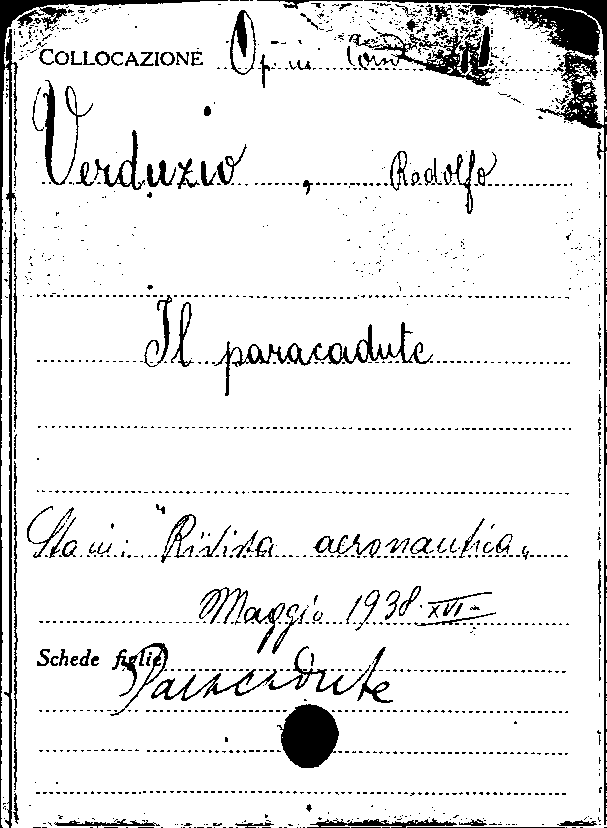 COLLOCAZIONE
Verduzio, Rodolfo
Il paracadute
Sta in: "Rivista aeronautica"
Maggio 1938 XVI-
Schede figlie
Paracadute